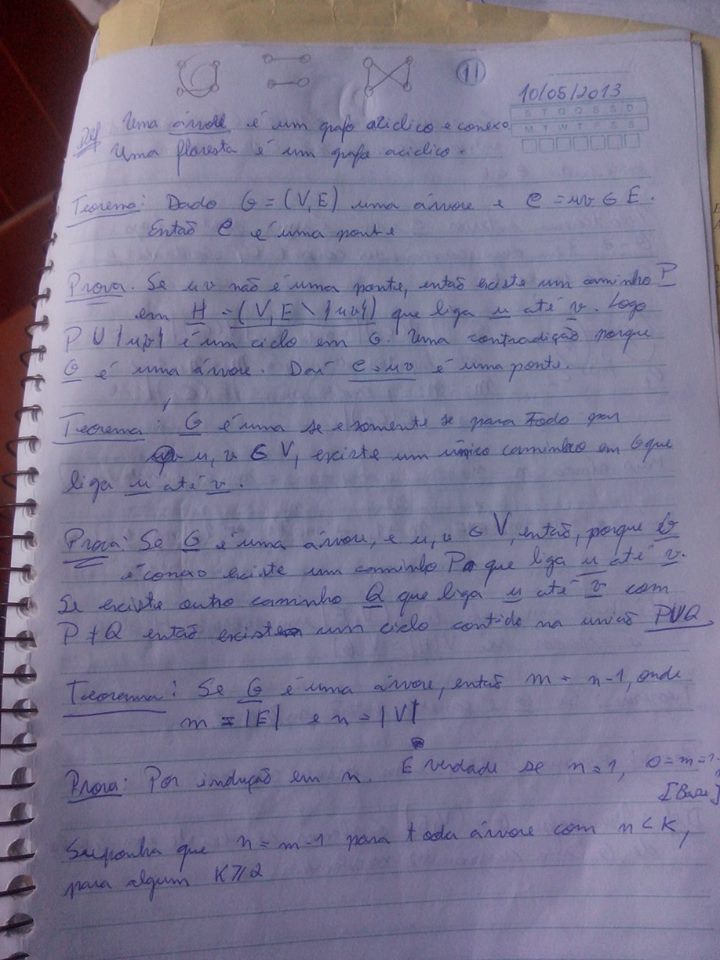 11
10/05/2013
S T Q Q S S D
M T W T F S S
Def Uma árvore é um grafo acíclico e conexo
Uma floresta é um grafo acíclico.
Teorema: Dado G = (V, E) uma árvore e e = uv ∈ E.
Então e é uma ponte
Prova. Se uv não é uma ponte, então existe um caminho P
em H = (V, E \ {uv}) que liga u até v. Logo
P ∪ {uv} é um ciclo em G. Uma contradição porque
G é uma árvore. Daí e = uv é uma ponte.
Teorema: G é uma se e somente se para todo par
u, v ∈ V, existe um único caminho em G que
liga u até v.
Prova: Se G é uma árvore, e u, v ∈ V, então, porque G
é conexo existe um caminho P que liga u até v.
Se existe outro caminho Q que liga u até v com
P ≠ Q então existe um ciclo contido na união P∪Q
Teorema: Se G é uma árvore, então m = n-1, onde
m = |E| e n = |V|
Prova: Por indução em n. É verdade se n = 1, 0 = m = 1-
[Base]
Suponha que n = m-1 para toda árvore com n < K,
para algum K ⩾ 2